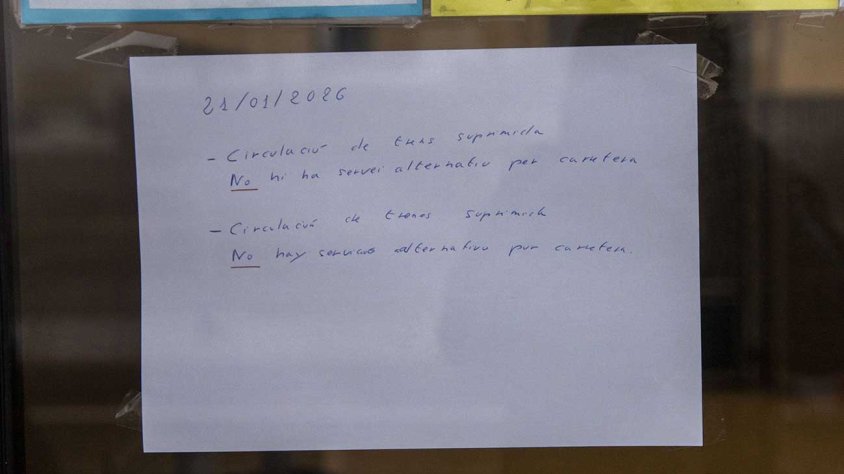 21/01/2026
- Circulació de trens suprimida
No hi ha servei alternatiu per carretera
- Circulación de trenes suprimida
No hay servicio alternativo por carretera.